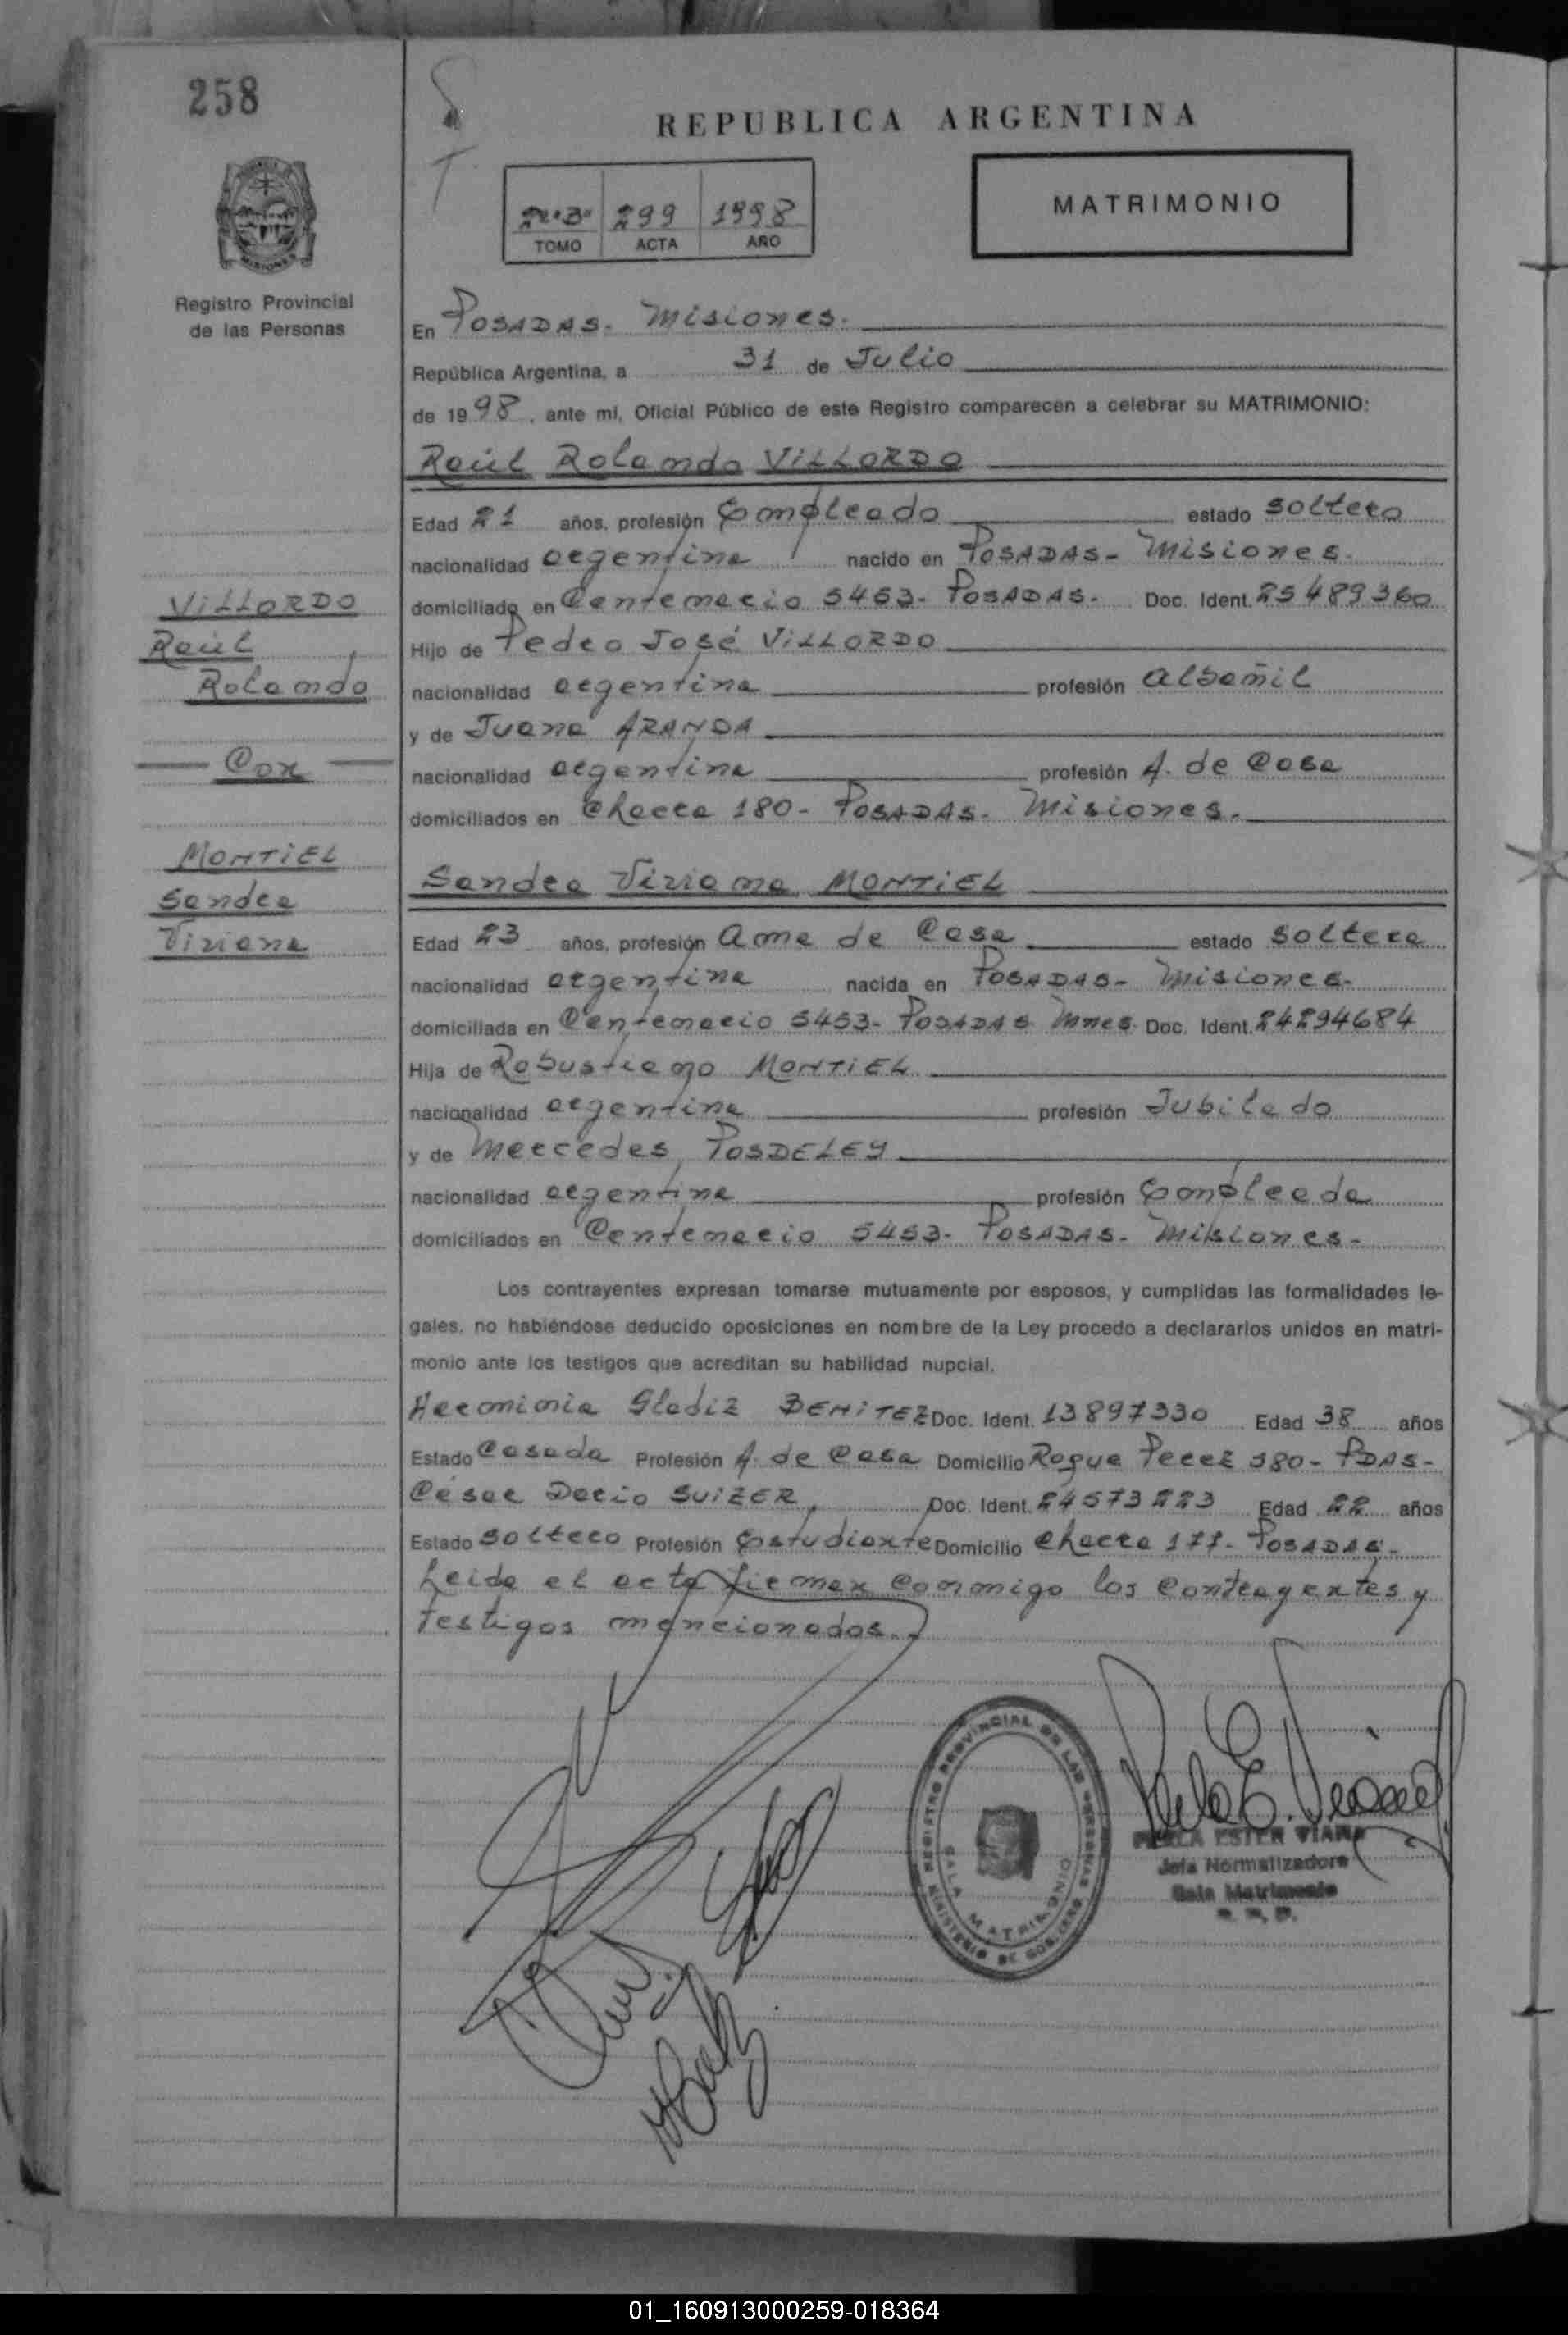 258
REPUBLICA ARGENTINA
299 1998
TOMO ACTA AÑO
MATRIMONIO
Registro Provincial
de las Personas
En POSADAS- Misiones.
República Argentina, a 31 de Julio
de 1998, ante mi, Oficial Público de este Registro comparecen a celebrar su MATRIMONIO:
Raúl Rolando VILLORDO
Edad 21 años, profesión Empleado estado soltero
nacionalidad argentina nacido en POSADAS- Misiones-
domiciliado en Centenario 5453- POSADAS- Doc. Ident. 25489360
Hijo de Pedro José VILLORDO
nacionalidad argentina profesión albañil
y de Juana ARANDA
nacionalidad argentina profesión A. de Casa
domiciliados en Chacra 180- POSADAS- Misiones.
VILLORDO
Raúl
Rolando
Con
MONTIEL
Sandra
Viviana
Sandra Viviana MONTIEL
Edad 23 años, profesión Ama de Casa estado soltera
nacionalidad argentina nacida en POSADAS- Misiones-
domiciliada en Centenario 5453- POSADAS Mnes. Doc. Ident. 24294684
Hija de Robustiano MONTIEL
nacionalidad argentina profesión Jubilado
y de Mercedes POSDELEY
nacionalidad argentina profesión Empleada
domiciliados en Centenario 5453- POSADAS- Misiones-
Los contrayentes expresan tomarse mutuamente por esposos, y cumplidas las formalidades le-
gales, no habiéndose deducido oposiciones en nombre de la Ley procedo a declararlos unidos en matri-
monio ante los testigos que acreditan su habilidad nupcial.
Herminia Gladiz BENITEZ Doc. Ident. 13897330 Edad 38 años
Estado Casada Profesión A. de Casa Domicilio Roque Perez 380- PDAS-
César Dario SUIZER Doc. Ident. 24573223 Edad 22 años
Estado soltero Profesión Estudiante Domicilio Chacra 177- POSADAS-
Leida el acta firman conmigo los contrayentes y
testigos mencionados.
REGISTRO PROVINCIAL DE LAS PERSONAS
SALA MATRIMONIO
MINISTERIO DE GOBIERNO
PERLA ESTER VIANA
Jefa Normalizadora
Sala Matrimonio
01_160913000259-018364